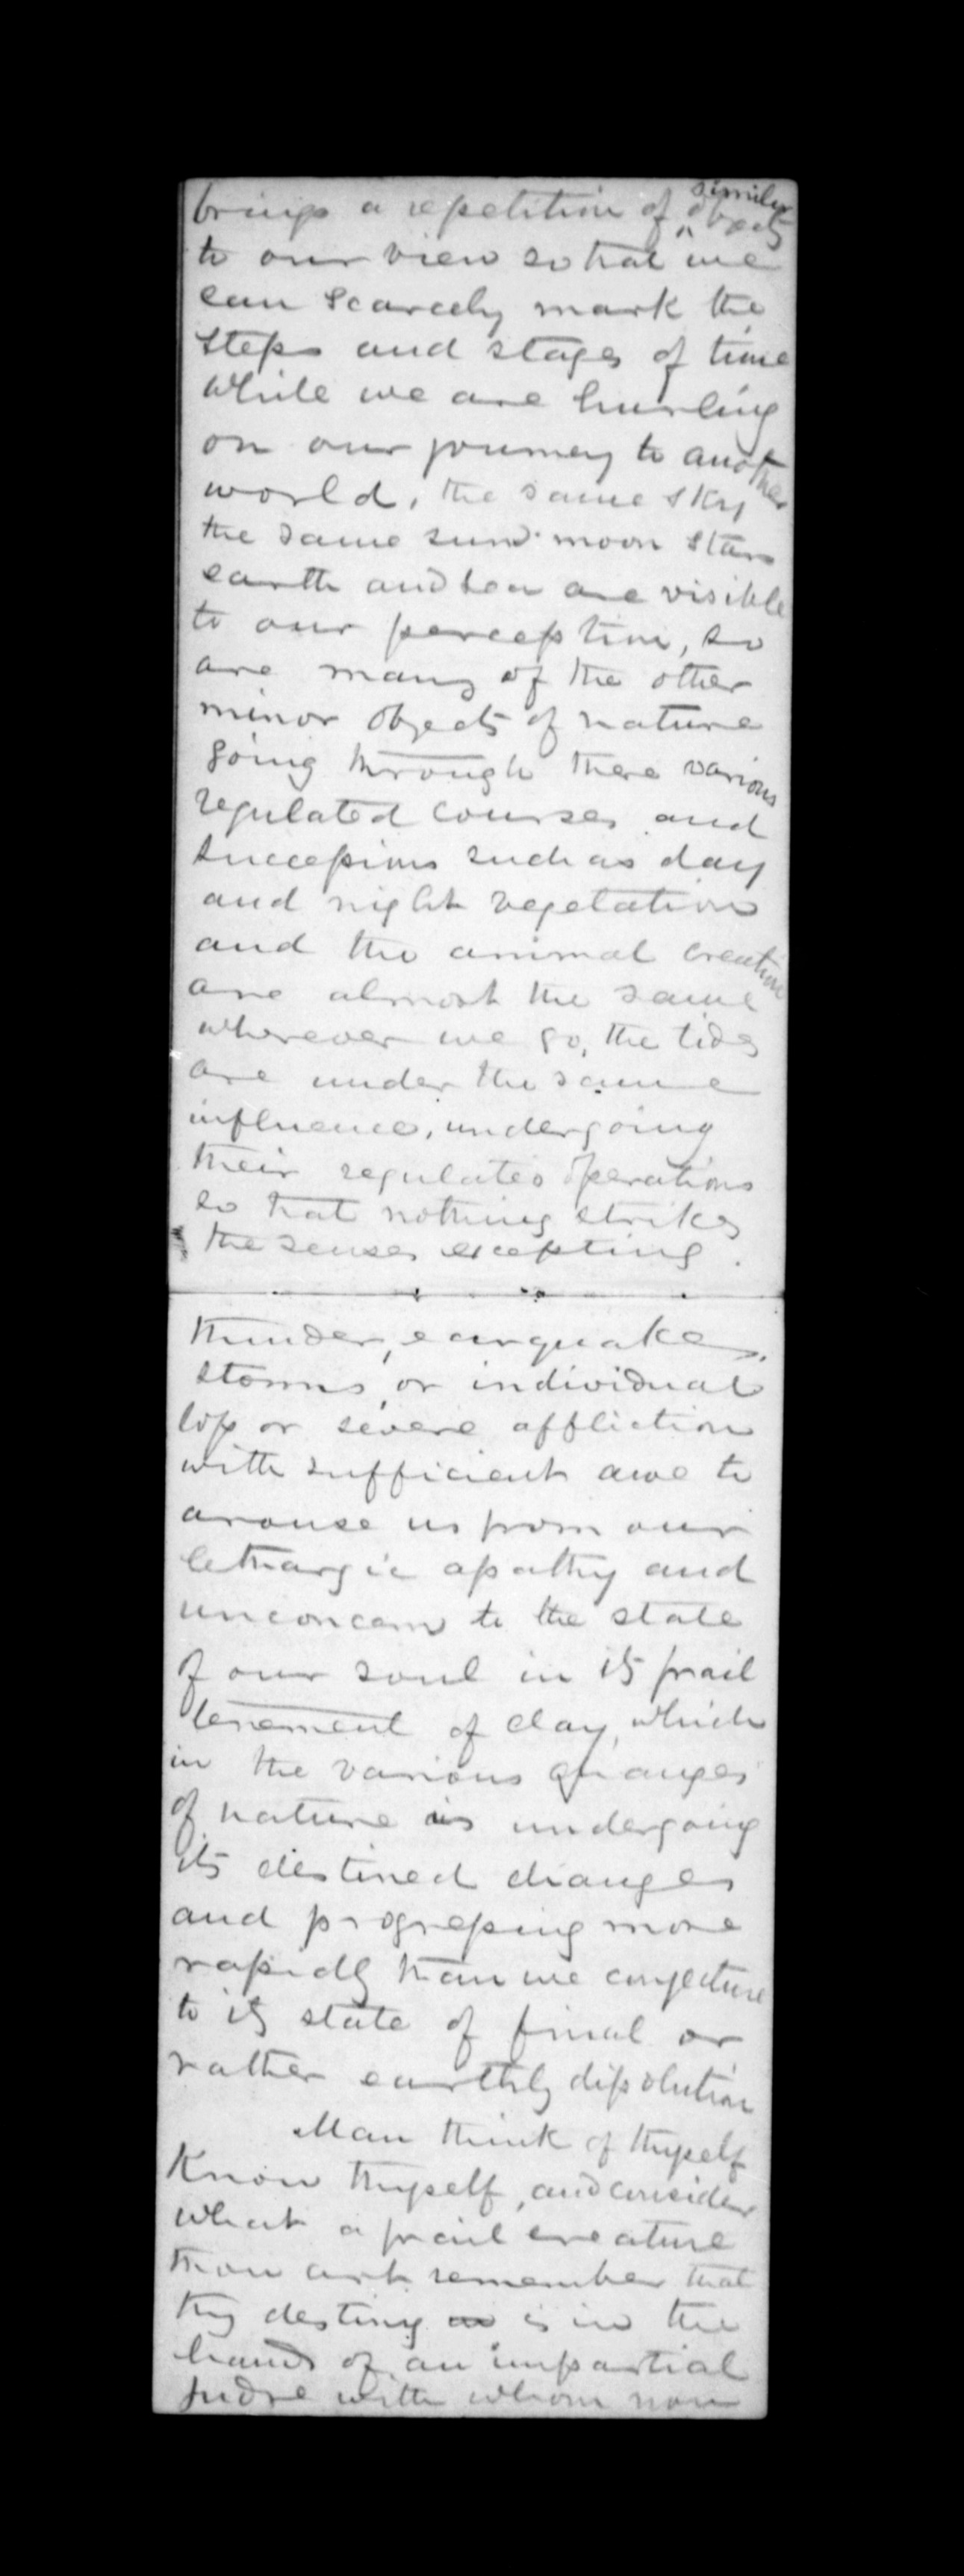 brings a repetition of ^similar objects
to our view so that we
can scarcely mark the
steps and stages of time
while we are hurling
on our journey to another
world, the same sky
the same sun moon stars
earth and sea are visible
to our perception, so
are many of the other
minor objects of nature
going through there various
regulated courses and
successions such as day
and night vegetation
and the animal creation
are almost the same
wherever we go, the tides
are under the same
influence, undergoing
their regulated operations
so that nothing strikes
the senses excepting
thunder, earquakes,
storms, or individual
loss or severe affliction
with sufficient awe to
arouse us from our
lethargic apathy and
unconcern to the state
of our soul in its frail
tenement of clay, which
in the various changes
of nature is undergoing
its destined changes
and progressing more
rapidly than we conjecture
to its state of final or
rather earthly dissolution
Man think of thyself
Know thyself, and consider
what a frail creature
thou art remember that
thy destiny is in the
hands of an impartial
Judge with whom non